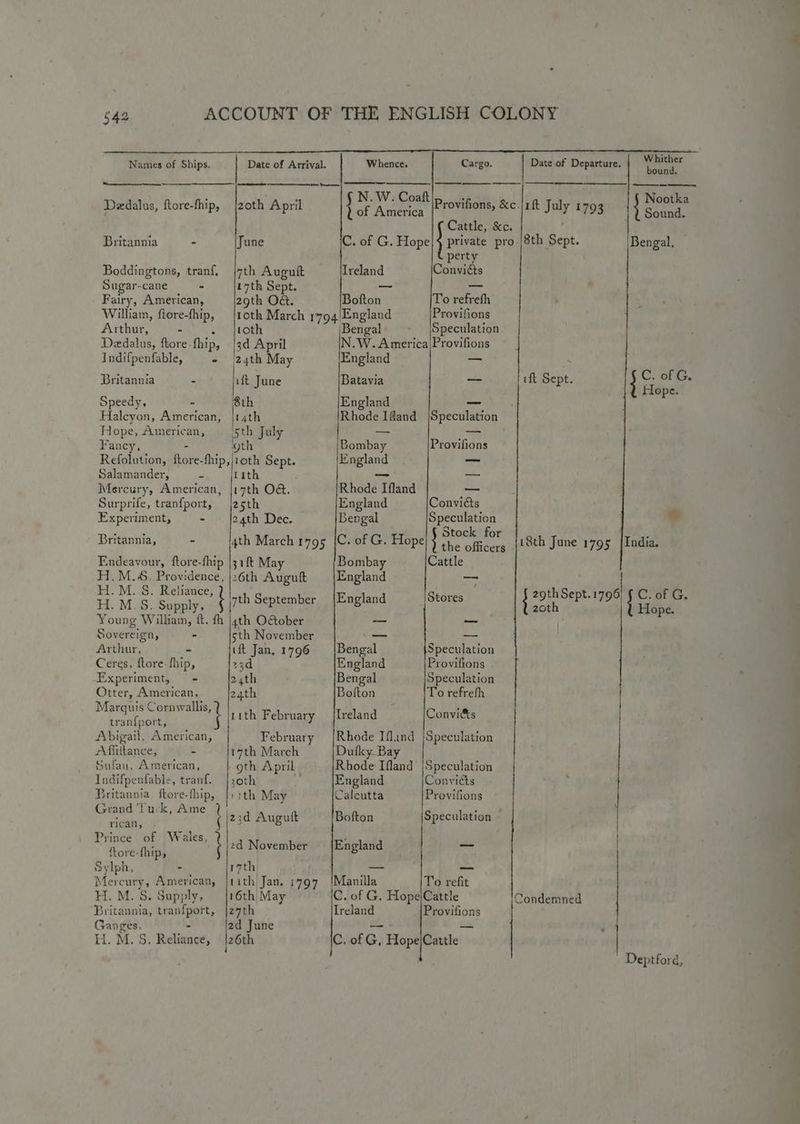 542 ACCOUNT OF THE ENGLISH COLONY
Names of Ships. | Date of Arrival. | Whence. | Cargo. | Date of Departure. | Whither bound.
Dædalus, ſtore-ſhip, | 20th April | { N. W. Coaſt of America | Proviſions, &c. | 1ſt July 1793 | { Nootka Sound.
Britannia - | June | C. of G. Hope | { Cattle, &c. private pro perty | 8th Sept. | Bengal.
Boddingtons, tranſ. | 7th Auguſt | Ireland | Convicts
Sugar-cane - | 17th Sept. | — | —
Fairy, American, | 29th Oct. | Boſton | To refreſh
William, ſtore-ſhip, | 10th March 1794 | England | Proviſions
Arthur, - | 10th | Bengal - | Speculation
Dædalus, ſtore ſhip, | 3d April | N. W. America | Proviſions
Indiſpenſable, - | 24th May | England | —
Britannia - | 1ſt June | Batavia | — | 1ſt Sept. | { C. of G. Hope.
Speedy, - | 8th | England | —
Halcyon, American, | 14th | Rhode Iſland | Speculation
Hope, American, | 5th July | — | —
Fancy, - | 9th | Bombay | Proviſions
Reſolution, ſtore-ſhip, | 10th Sept. | England | —
Salamander, - | 11th | — | —
Mercury, American, | 17th Oct. | Rhode Iſland | —
Surpriſe, tranſport, | 25th | England | Convicts
Experiment, - | 24th Dec. | Bengal | Speculation
Britannia, - | 4th March 1795 | C. of G. Hope | { Stock for the officers | 18th June 1795 | India.
Endeavour, ſtore-ſhip | 31ſt May | Bombay | Cattle
H. M. S. Providence, | 26th Auguſt | England | —
H. M. S. Reliance, H. M. S. Supply, } | 7th September | England | Stores | { 29th Sept. 1796 20th | { C. of G. Hope.
Young William, ſt. ſh | 4th October | — | —
Sovereign, - | 5th November | — | —
Arthur, - | 1ſt Jan. 1796 | Bengal | Speculation
Ceres, ſtore ſhip, | 23d | England | Proviſions
Experiment, - | 24th | Bengal | Speculation
Otter, American, | 24th | Boſton | To refreſh
Marquis Cornwallis, tranſport, } | 11th February | Ireland | Convicts
Abigail, American, | February | Rhode Iſland | Speculation
Aſſiſtance, - | 17th March | Duſky Bay
Suſan, American, | 9th April | Rhode Iſland | Speculation
Indiſpenſable, tranſ. | 30th | England | Convicts
Britannia ſtore-ſhip, | 11th May | Calcutta | Proviſions
Grand Turk, Ame rican, } | 23d Auguſt | Boſton | Speculation
Prince of Wales, ſtore-ſhip, } | 2d November | England | —
Sylph, - | 17th | — | —
Mercury, American, | 11th Jan. 1797 | Manilla | To refit
H. M. S. Supply, | 16th May | C. of G. Hope | Cattle | Condemned
Britannia, tranſport, | 27th | Ireland | Proviſions
Ganges, - | 2d June | — | —
H. M. S. Reliance, | 26th | C. of G, Hope | Cattle
Deptford,